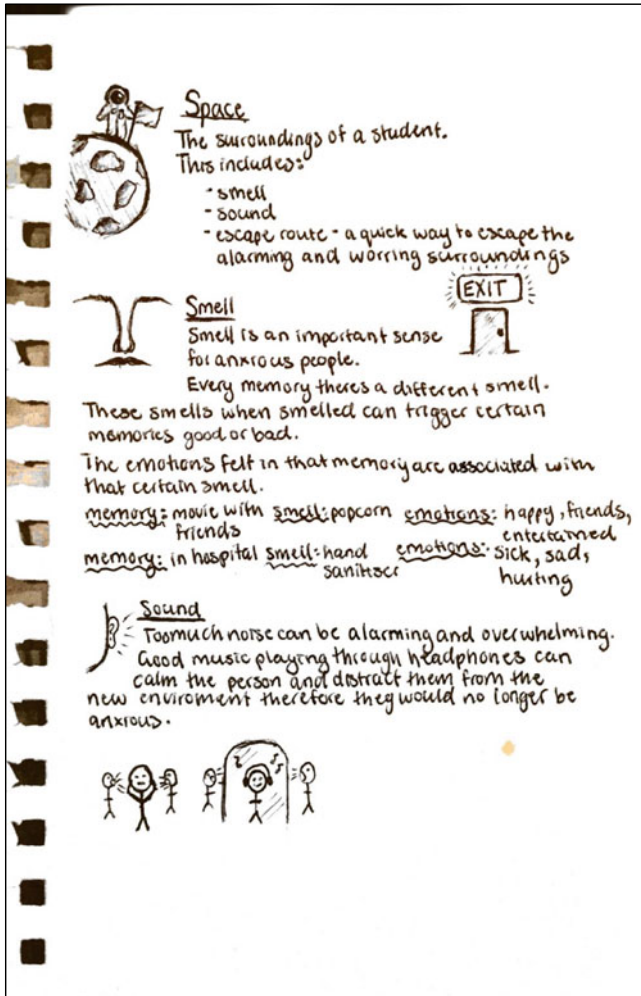 Space
The surroundings of a student.
This includes:
- smell
- sound
- escape route - a quick way to escape the
alarming and worring surroundings
EXIT
Smell
Smell is an important sense
for anxious people.
Every memory theres a different smell.
These smells when smelled can trigger certain
memories good or bad.
The emotions felt in that memory are associated with
that certain smell.
memory: movie with smell: popcorn emotions: happy, friends,
friends entertained
memory: in hospital smell: hand emotions: sick, sad,
sanitiser hurting
Sound
Too much noise can be alarming and overwhelming.
Good music playing through headphones can
calm the person and distract them from the
new enviroment therefore they would no longer be
anxious.